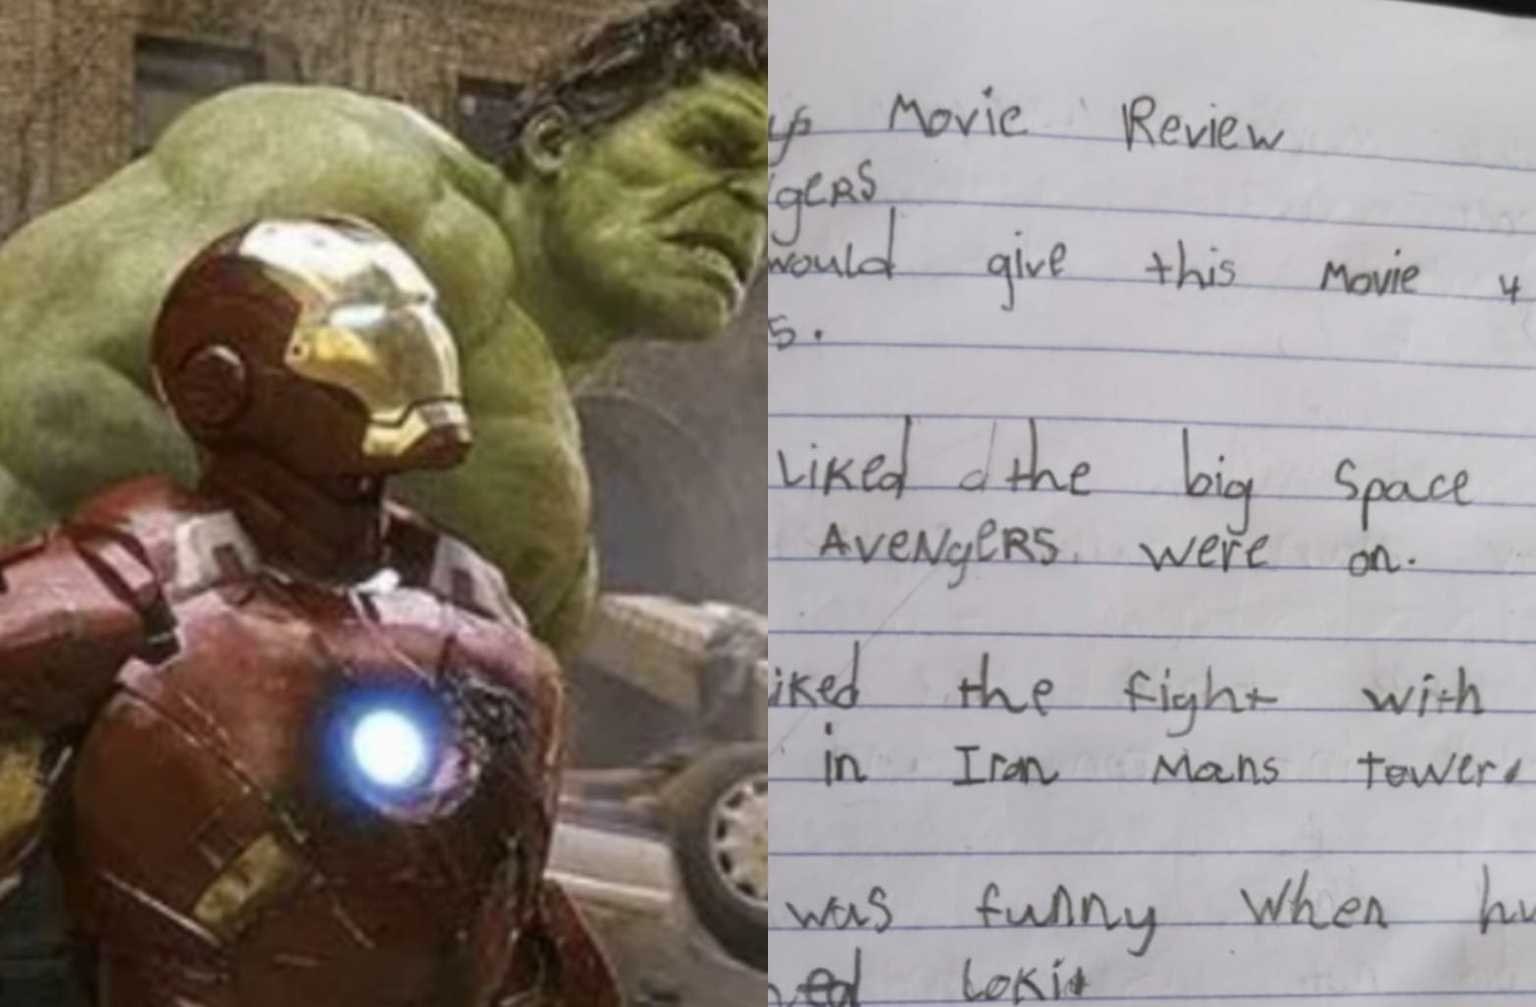 Movie Review
gers
would give this Movie 4
5.
Liked the big Space
Avengers were on.
iked the fight with
in Iron Mans tower.
was funny when hu
ed Loki